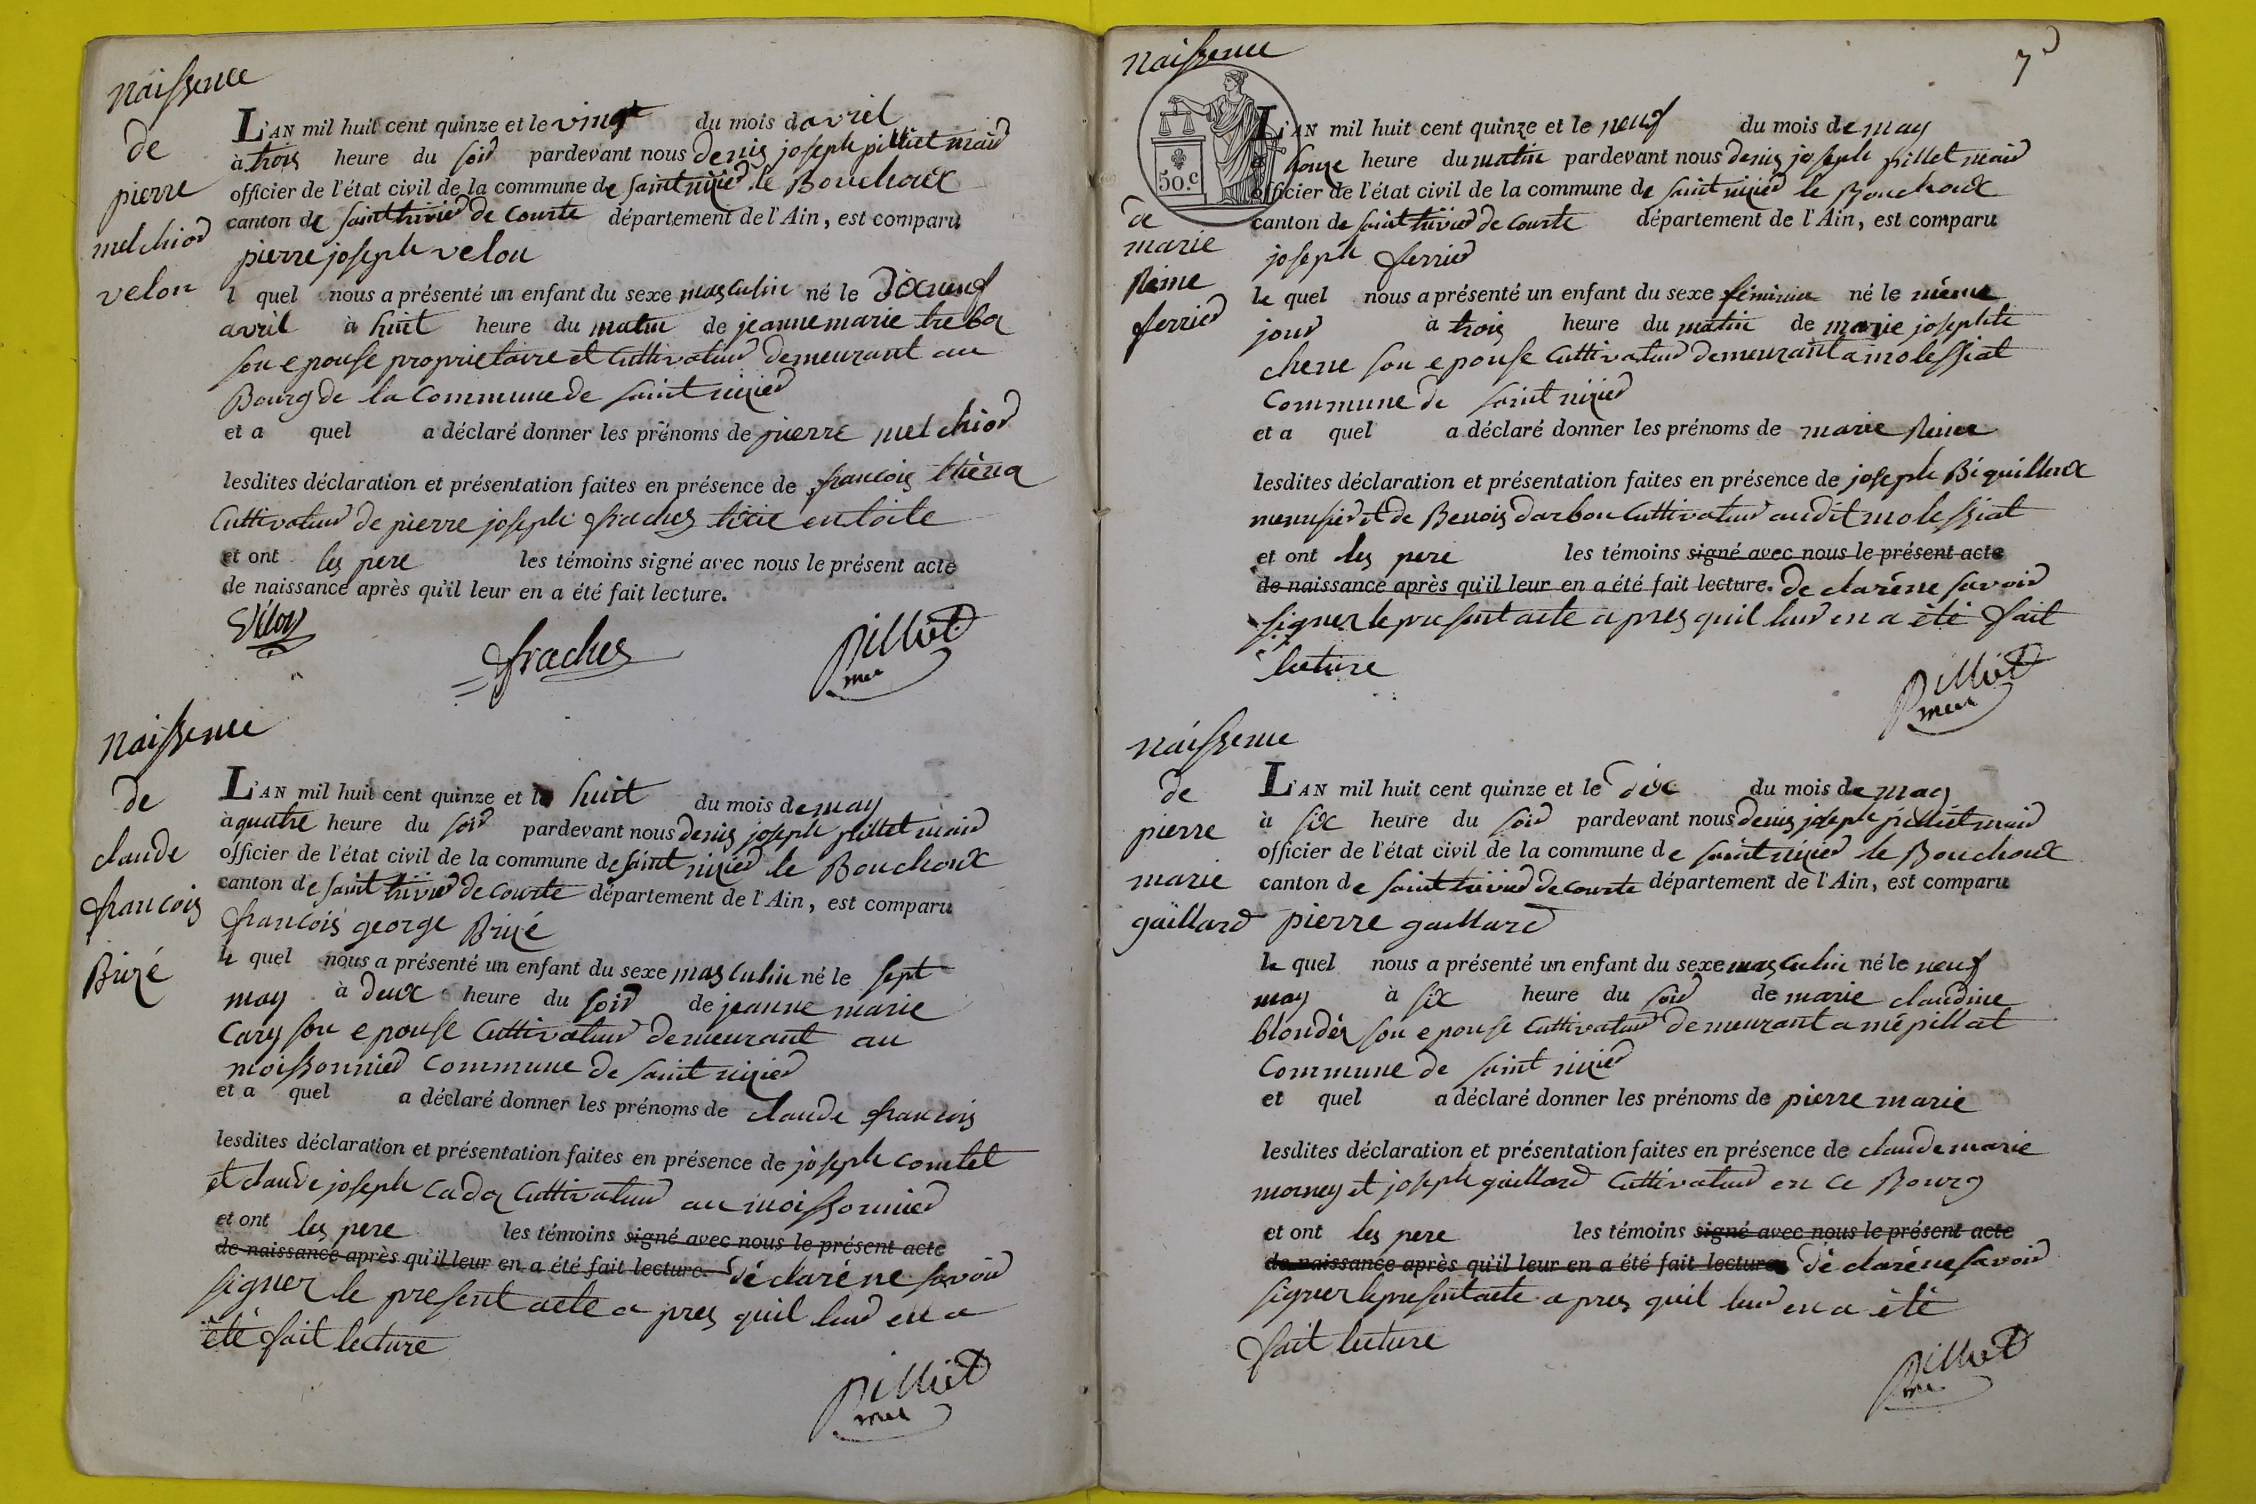 naissence
de
pierre
melchior
velon
L'AN mil huit cent quinze et le vingt du mois davril
à trois heure du soir pardevant nous denis joseph pilliet maire
officier de l'état civil de la commune de saint nizier le Bouchoux
canton de saint trivier de Courte département de l'Ain, est comparu
pierre joseph velon
l quel nous a présenté un enfant du sexe masculin né le Dixneuf
avril à huit heure du matin de jeanne marie
son epouse proprietaire et Cultivateur demeurant au
Bourg de la Commune de saint nizier
et a quel a déclaré donner les prénoms de pierre melchior
lesdites déclaration et présentation faites en présence de francois
Cultivateur de pierre joseph fraches tixie en toile
et ont les pere les témoins signé avec nous le présent acte
de naissance après qu'il leur en a été fait lecture.
Vélon
fraches
Pilliet
mre
naissence
de
claude
francois
Brizé
L'AN mil huit cent quinze et le huit du mois de may
à quatre heure du soir pardevant nous denis joseph pilliet maire
officier de l'état civil de la commune de saint nizier le Bouchoux
canton de saint trivier de Courte département de l'Ain, est comparu
francois george Brizé
le quel nous a présenté un enfant du sexe masculin né le sept
may à deux heure du soir de jeanne marie
Cary son epouse Cultivateur demeurant au
moissonnier Commune de saint nizier
et a quel a déclaré donner les prénoms de claude francois
lesdites déclaration et présentation faites en présence de joseph comtet
et claude joseph Cadoz Cultivateur au moissonnier
et ont les pere les témoins signé avec nous le présent acte
de naissance après qu'il leur en a été fait lecture. déclaréne savoir
signer le present acte a pres quil leur en a
été fait lecture
Pilliet
mre
7
naissence
de
marie
Reine
ferrier
50.c
L'AN mil huit cent quinze et le neuf du mois de may
à honze heure du matin pardevant nous denis joseph pilliet maire
officier de l'état civil de la commune de saint nizier le Bouchoux
canton de saint trivier de Courte département de l'Ain, est comparu
joseph ferrier
le quel nous a présenté un enfant du sexe féminin né le même
jour à trois heure du matin de marie josephte
chene son epouse Cultivateur demeurant a molessiat
Commune de saint nizier
et a quel a déclaré donner les prénoms de marie Reine
lesdites déclaration et présentation faites en présence de joseph Béquilleux
menusier et de Benois darbon Cultivateur audit molessiat
et ont les pere les témoins signé avec nous le présent acte
de naissance après qu'il leur en a été fait lecture. de claréne savoir
signer le present acte a pres quil leur en a été fait
lecture
Pilliet
mre
naissence
de
pierre
marie
gaillard
L'AN mil huit cent quinze et le dix du mois de may
à six heure du soir pardevant nous denis joseph pilliet maire
officier de l'état civil de la commune de saint nizier le Bouchoux
canton de saint trivier de courte département de l'Ain, est comparu
pierre gaillard
le quel nous a présenté un enfant du sexe masculin né le neuf
may à six heure du soir de marie claudine
blondel son epouse Cultivateur demeurant a mépillat
Commune de saint nizier
et quel a déclaré donner les prénoms de pierre marie
lesdites déclaration et présentation faites en présence de claude marie
morney et joseph gaillard Cultivateur en ce Bourg
et ont les pere les témoins signé avec nous le présent acte
de naissance après qu'il leur en a été fait lecture. dé claréne savoir
signer le present acte a pres quil leur en a été
fait lecture
Pilliet
mre